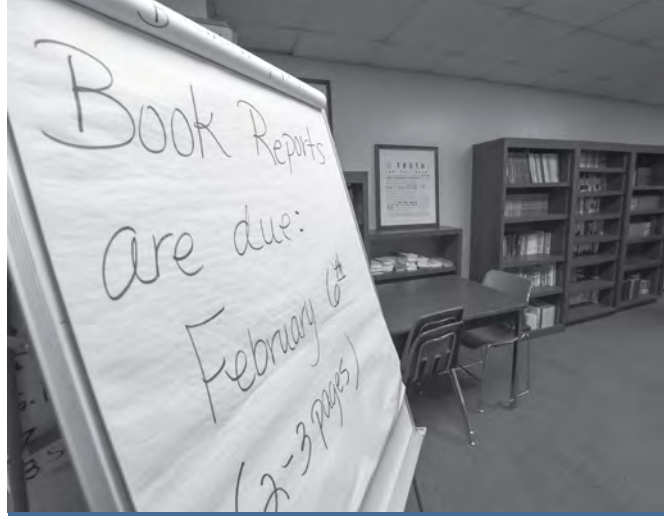 Book Reports
are due:
February 6th
(2-3 pages)
TRUTH